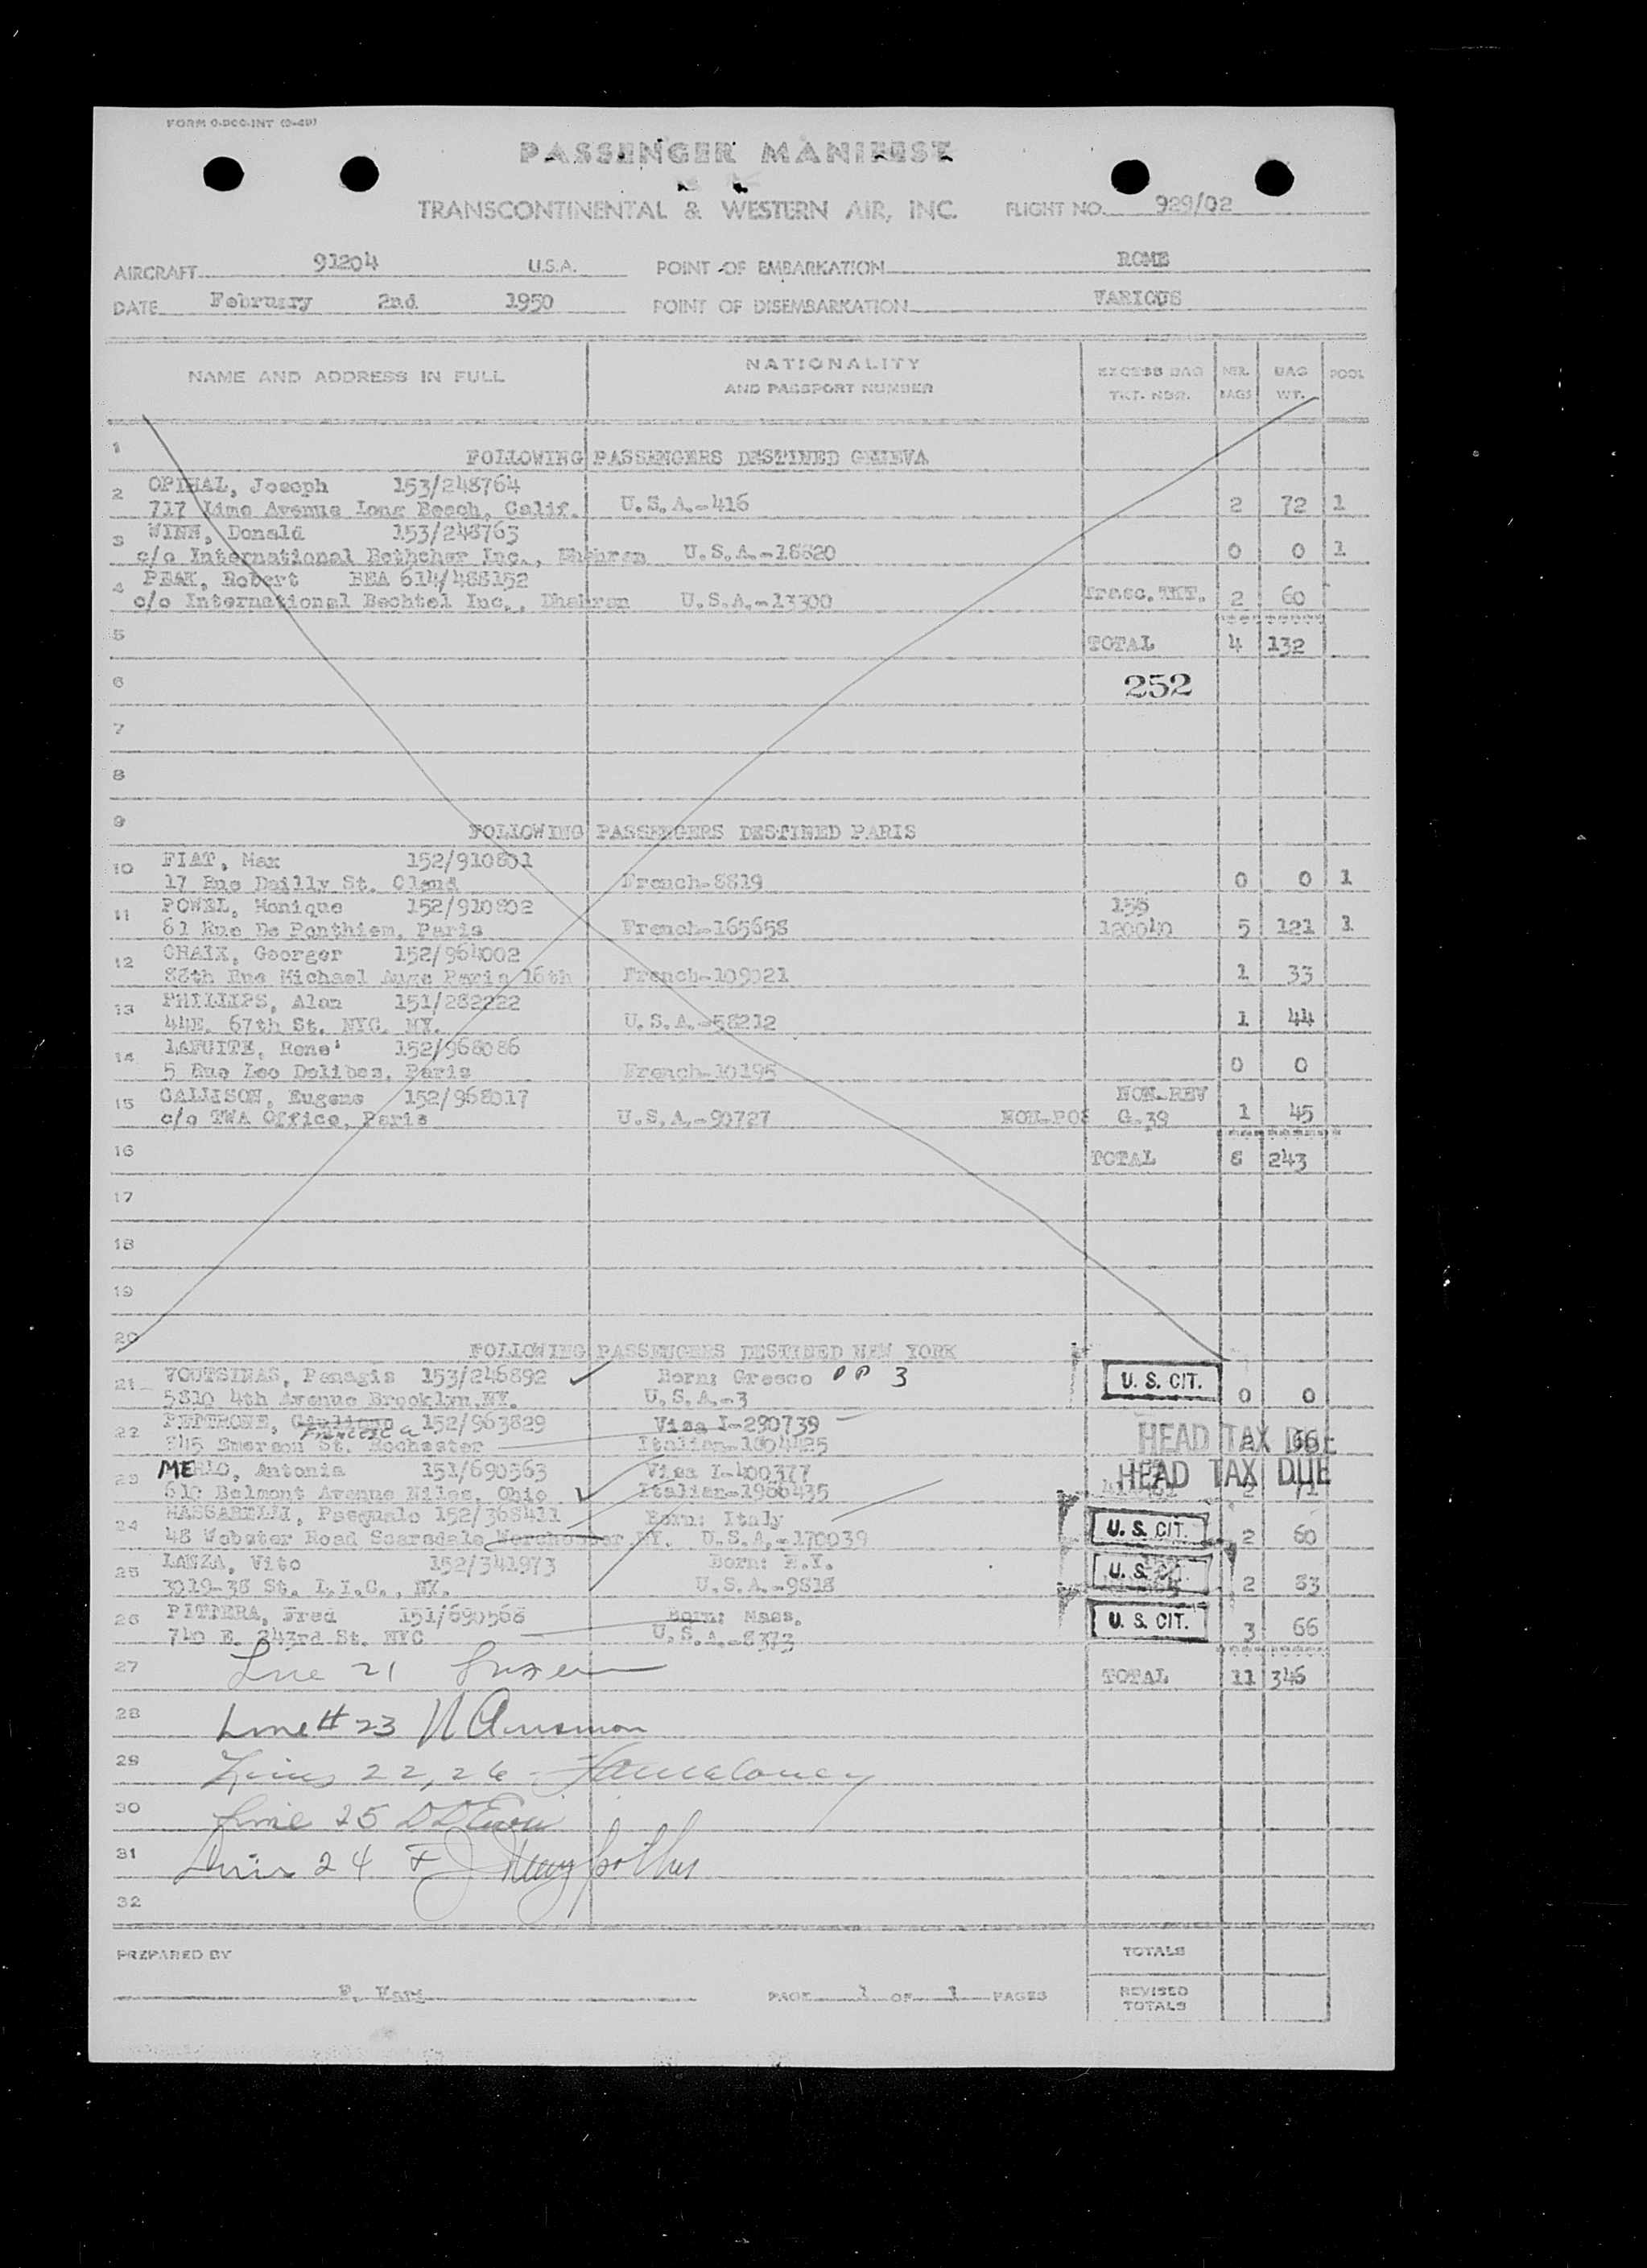 PASSENGER MANIFEST
TRANSCONTINENTAL & WESTERN AIR, INC. FLIGHT NO. 929/02
AIRCRAFT 91204 U.S.A. POINT OF EMBARKATION ROME
DATE February 2nd 1950 POINT OF DISEMBARKATION VARIOUS
NAME AND ADDRESS IN FULL NATIONALITY AND PASSPORT NUMBER EXCESS BAG TKT. NBR. NBR. BAGS BAG WT. POOL
1 FOLLOWING PASSENGERS DESTINED GENEVA
2 OPIHAL, Joseph 153/248764
717 Lime Avenue Long Beach, Calif. U.S.A.-416 2 72 1
3 WINN, Donald 153/248763
c/o International Inc., Dhahran U.S.A.-18820 0 0 1
4 PEAK, Robert BEA 614/488152
c/o International Bechtel Inc., Dhahran U.S.A.-13300 2 60
5 TOTAL 4 132
6 252
7
8
9 FOLLOWING PASSENGERS DESTINED PARIS
10 FIAT, Max 152/910801
17 Rue Dailly St. Cloud French-8819 0 0 1
11 POWEL, Monique 152/910802 155
61 Rue De Ponthiem, Paris French-165658 120040 5 121 1
12 CHAIX, Georger 152/964002
88th Rue Michael Ange Paris 16th French-109021 1 33
13 PHILLIPS, Alan 151/282222
44E. 67th St. NYC. NY. U.S.A.-58212 1 44
14 LAFUITE, Rene' 152/968086
5 Rue Leo Delibes, Paris French-10195 0 0
15 GALLISON, Eugene 152/968017 NON-REV
c/o TWA Office, Paris U.S.A.-90727 NON-POS G-39 1 45
16 TOTAL 8 243
17
18
19
20 FOLLOWING PASSENGERS DESTINED NEW YORK
21 VOUTSINAS, Panagis 153/246892 Born: Greece PP 3
5810 4th Avenue Brooklyn.NY. U.S.A.-3 U. S. CIT. 0 0
22 PETTRONE, Giuliano Francesca 152/963829 Visa I-290739
345 Emerson St. Rochester Italian-1804425 HEAD TAX DUE 2 66
23 MERLO, Antonia 151/690563 Visa I-400377
619 Belmont Avenue Niles, Ohio Italian-1966435 HEAD TAX DUE 2 71
24 MASSARELLI, Pasquale 152/368411 Born: Italy
48 Webster Road Scarsdale NY. U.S.A.-170039 U. S. CIT. 2 60
25 LANZA, Vito 152/341973 Born: N.Y.
3019-38 St. L.I.C., NY. U.S.A.-9818 U. S. CIT. 2 83
26 PITTERA, Fred 151/690568 Born: Mass.
740 E. 243rd St. NYC U.S.A.-8373 U. S. CIT. 3 66
27 Line 21 TOTAL 11 346
28 Line # 23
29 Lines 22, 26
30 Line 25
31 Line 24
32
PREPARED BY TOTALS
PAGE 1 OF 1 PAGES REVISED TOTALS